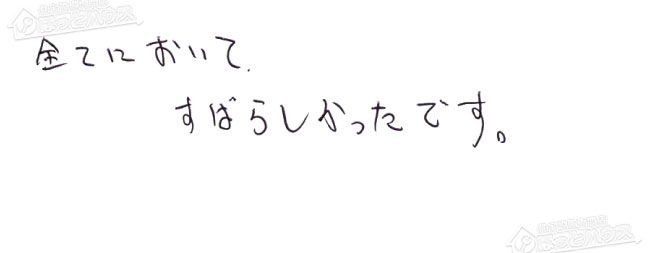 全てにおいて
すばらしかったです。